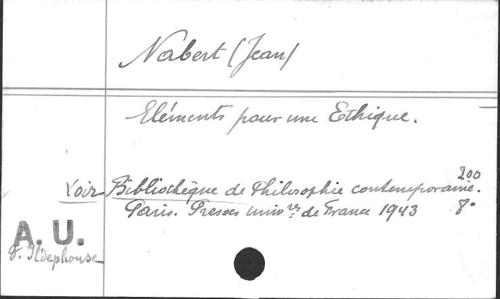 Nabert (Jean)
Eléments pour une Ethique.
200
Voir Bibliothèque de Philosophie contemporaine.
Paris. Presses univ.res de France 1943 8°
A. U.
f. Ildephonse